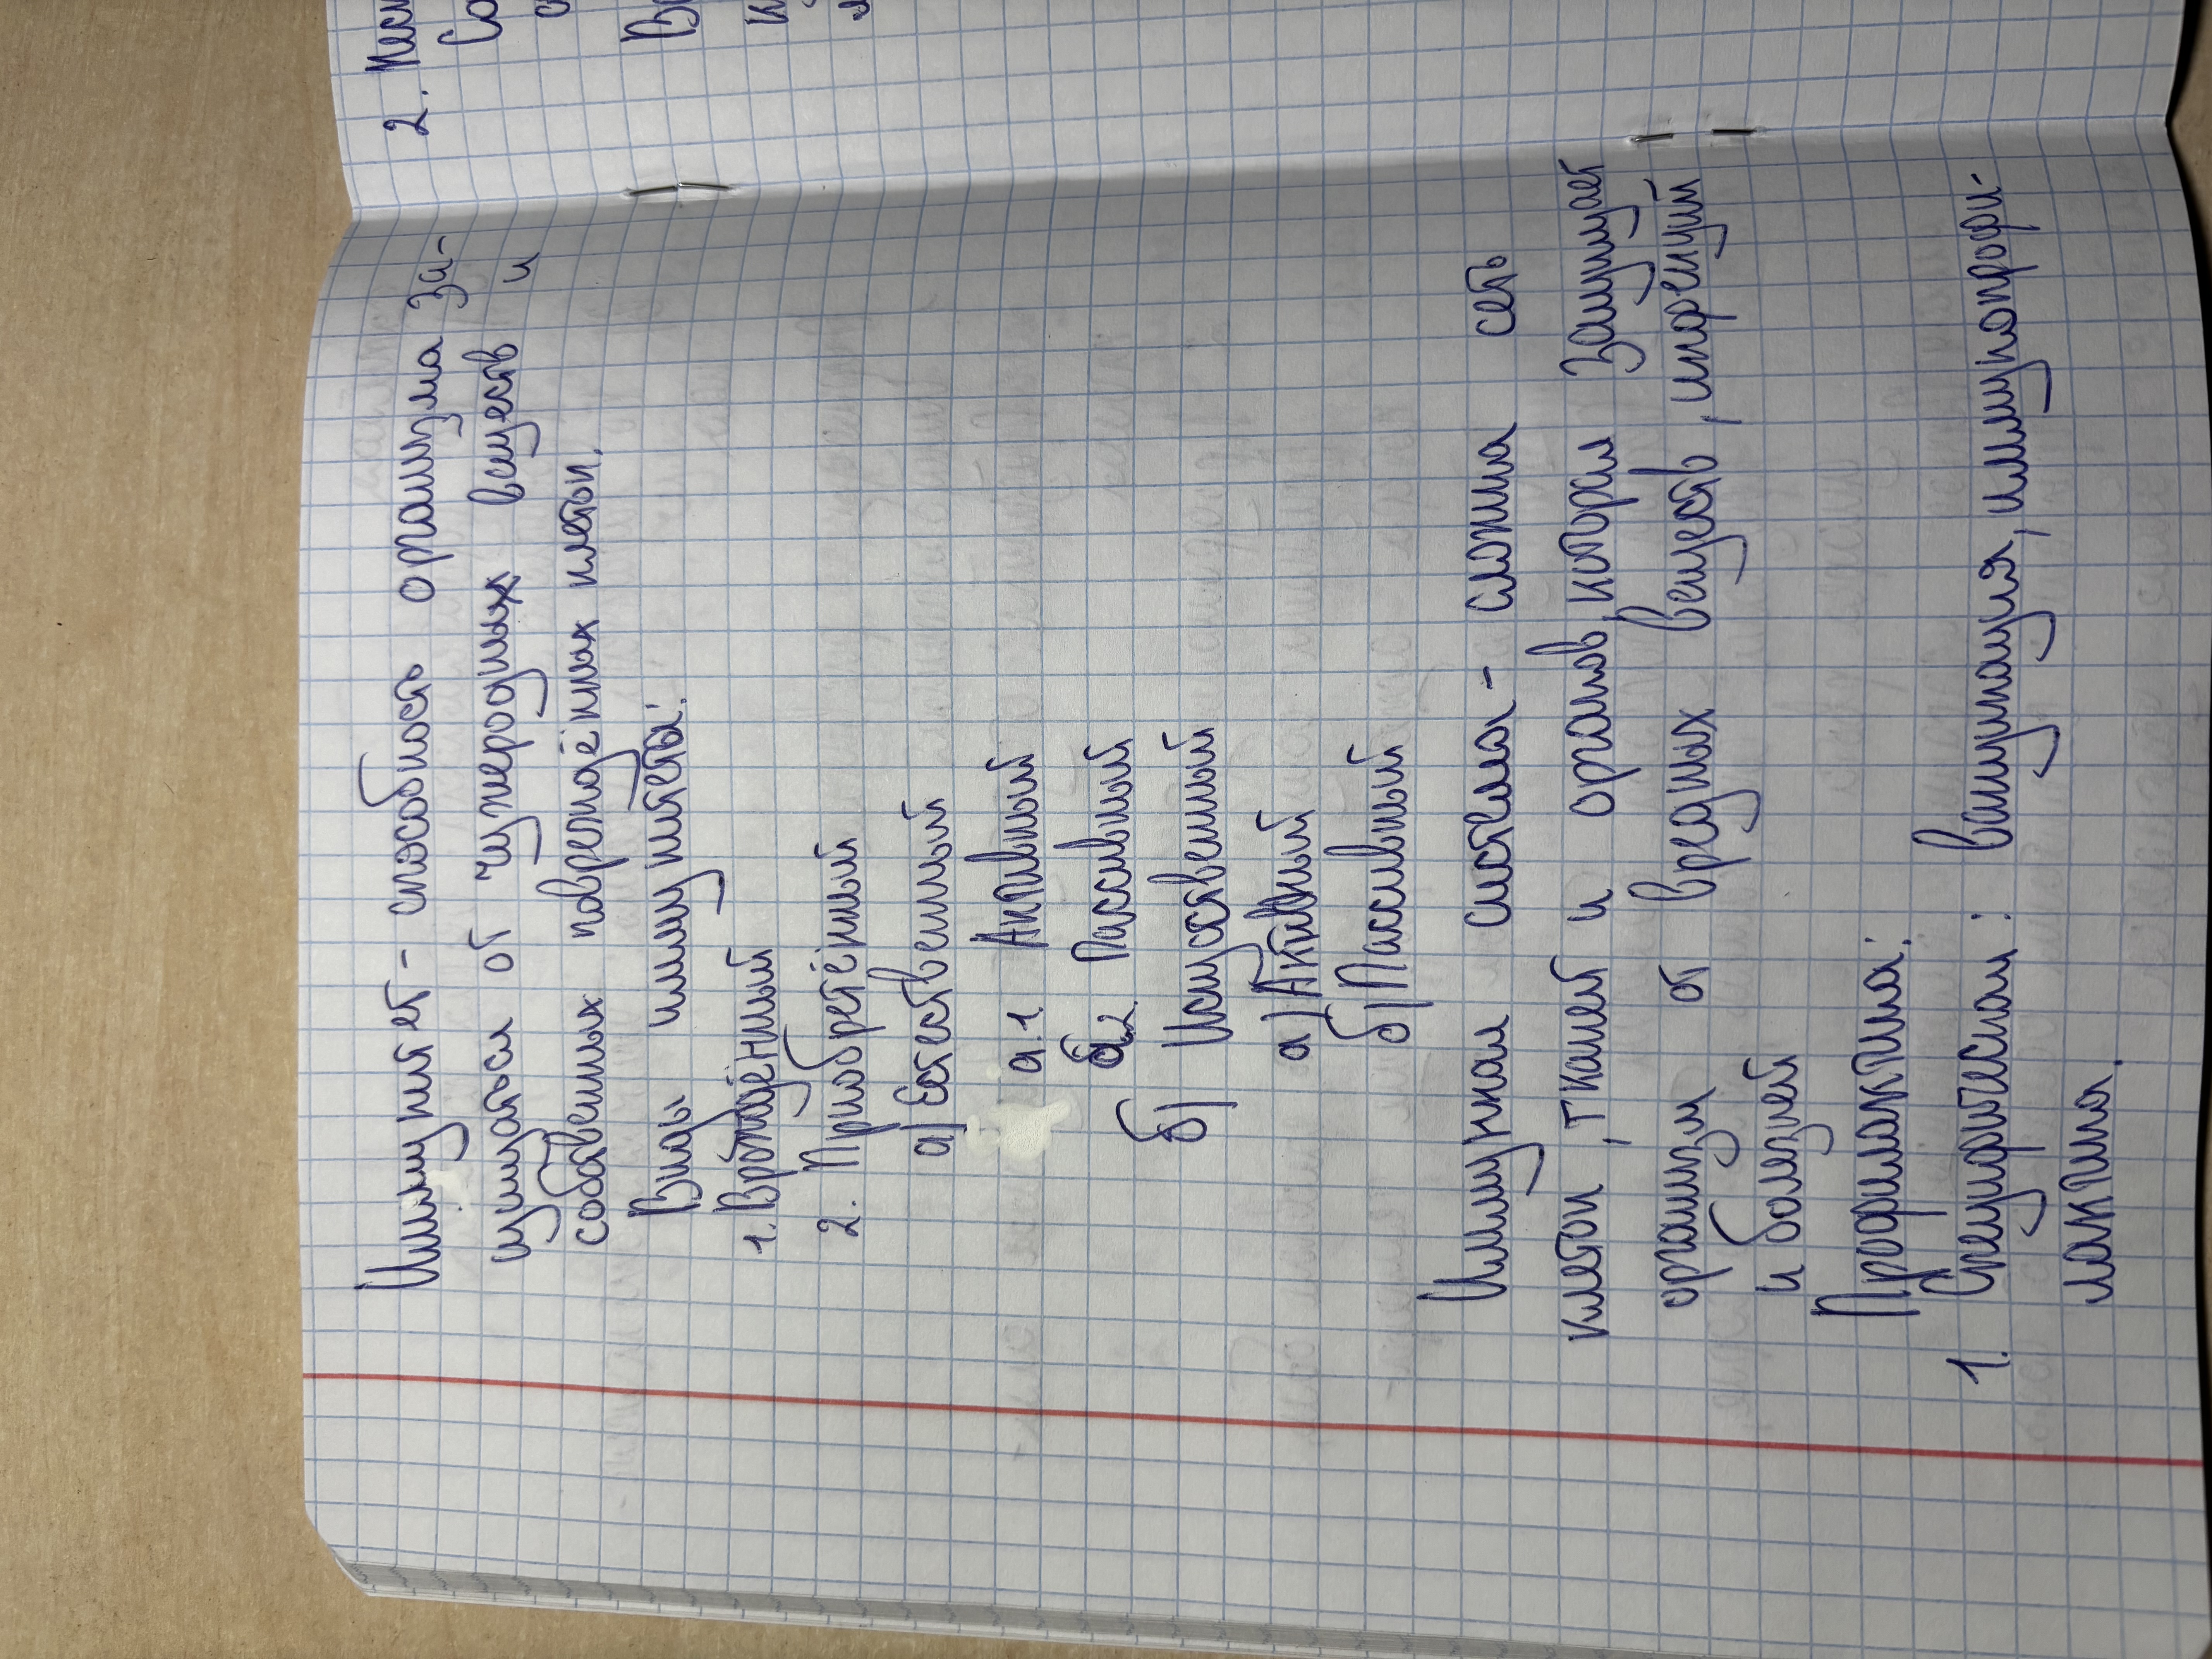 Иммунитет - способность организма за-
щищаться от чужеродных веществ и
собственных повреждённых клеток.
Виды иммунитеты:
1. Врождённый
2. Приобретённый
а) Естественный
а.1 Активный
а.2 Пассивный
б) Искусственный
а) Активный
б) Пассивный
Иммунная система - сложна сеть
клеток, тканей и органов, которая защищает
организм от вредных веществ, инфекций
и болезней
Профилактика:
1. Специфическая: вакцинация, иммунопрофи-
лактика.
2.